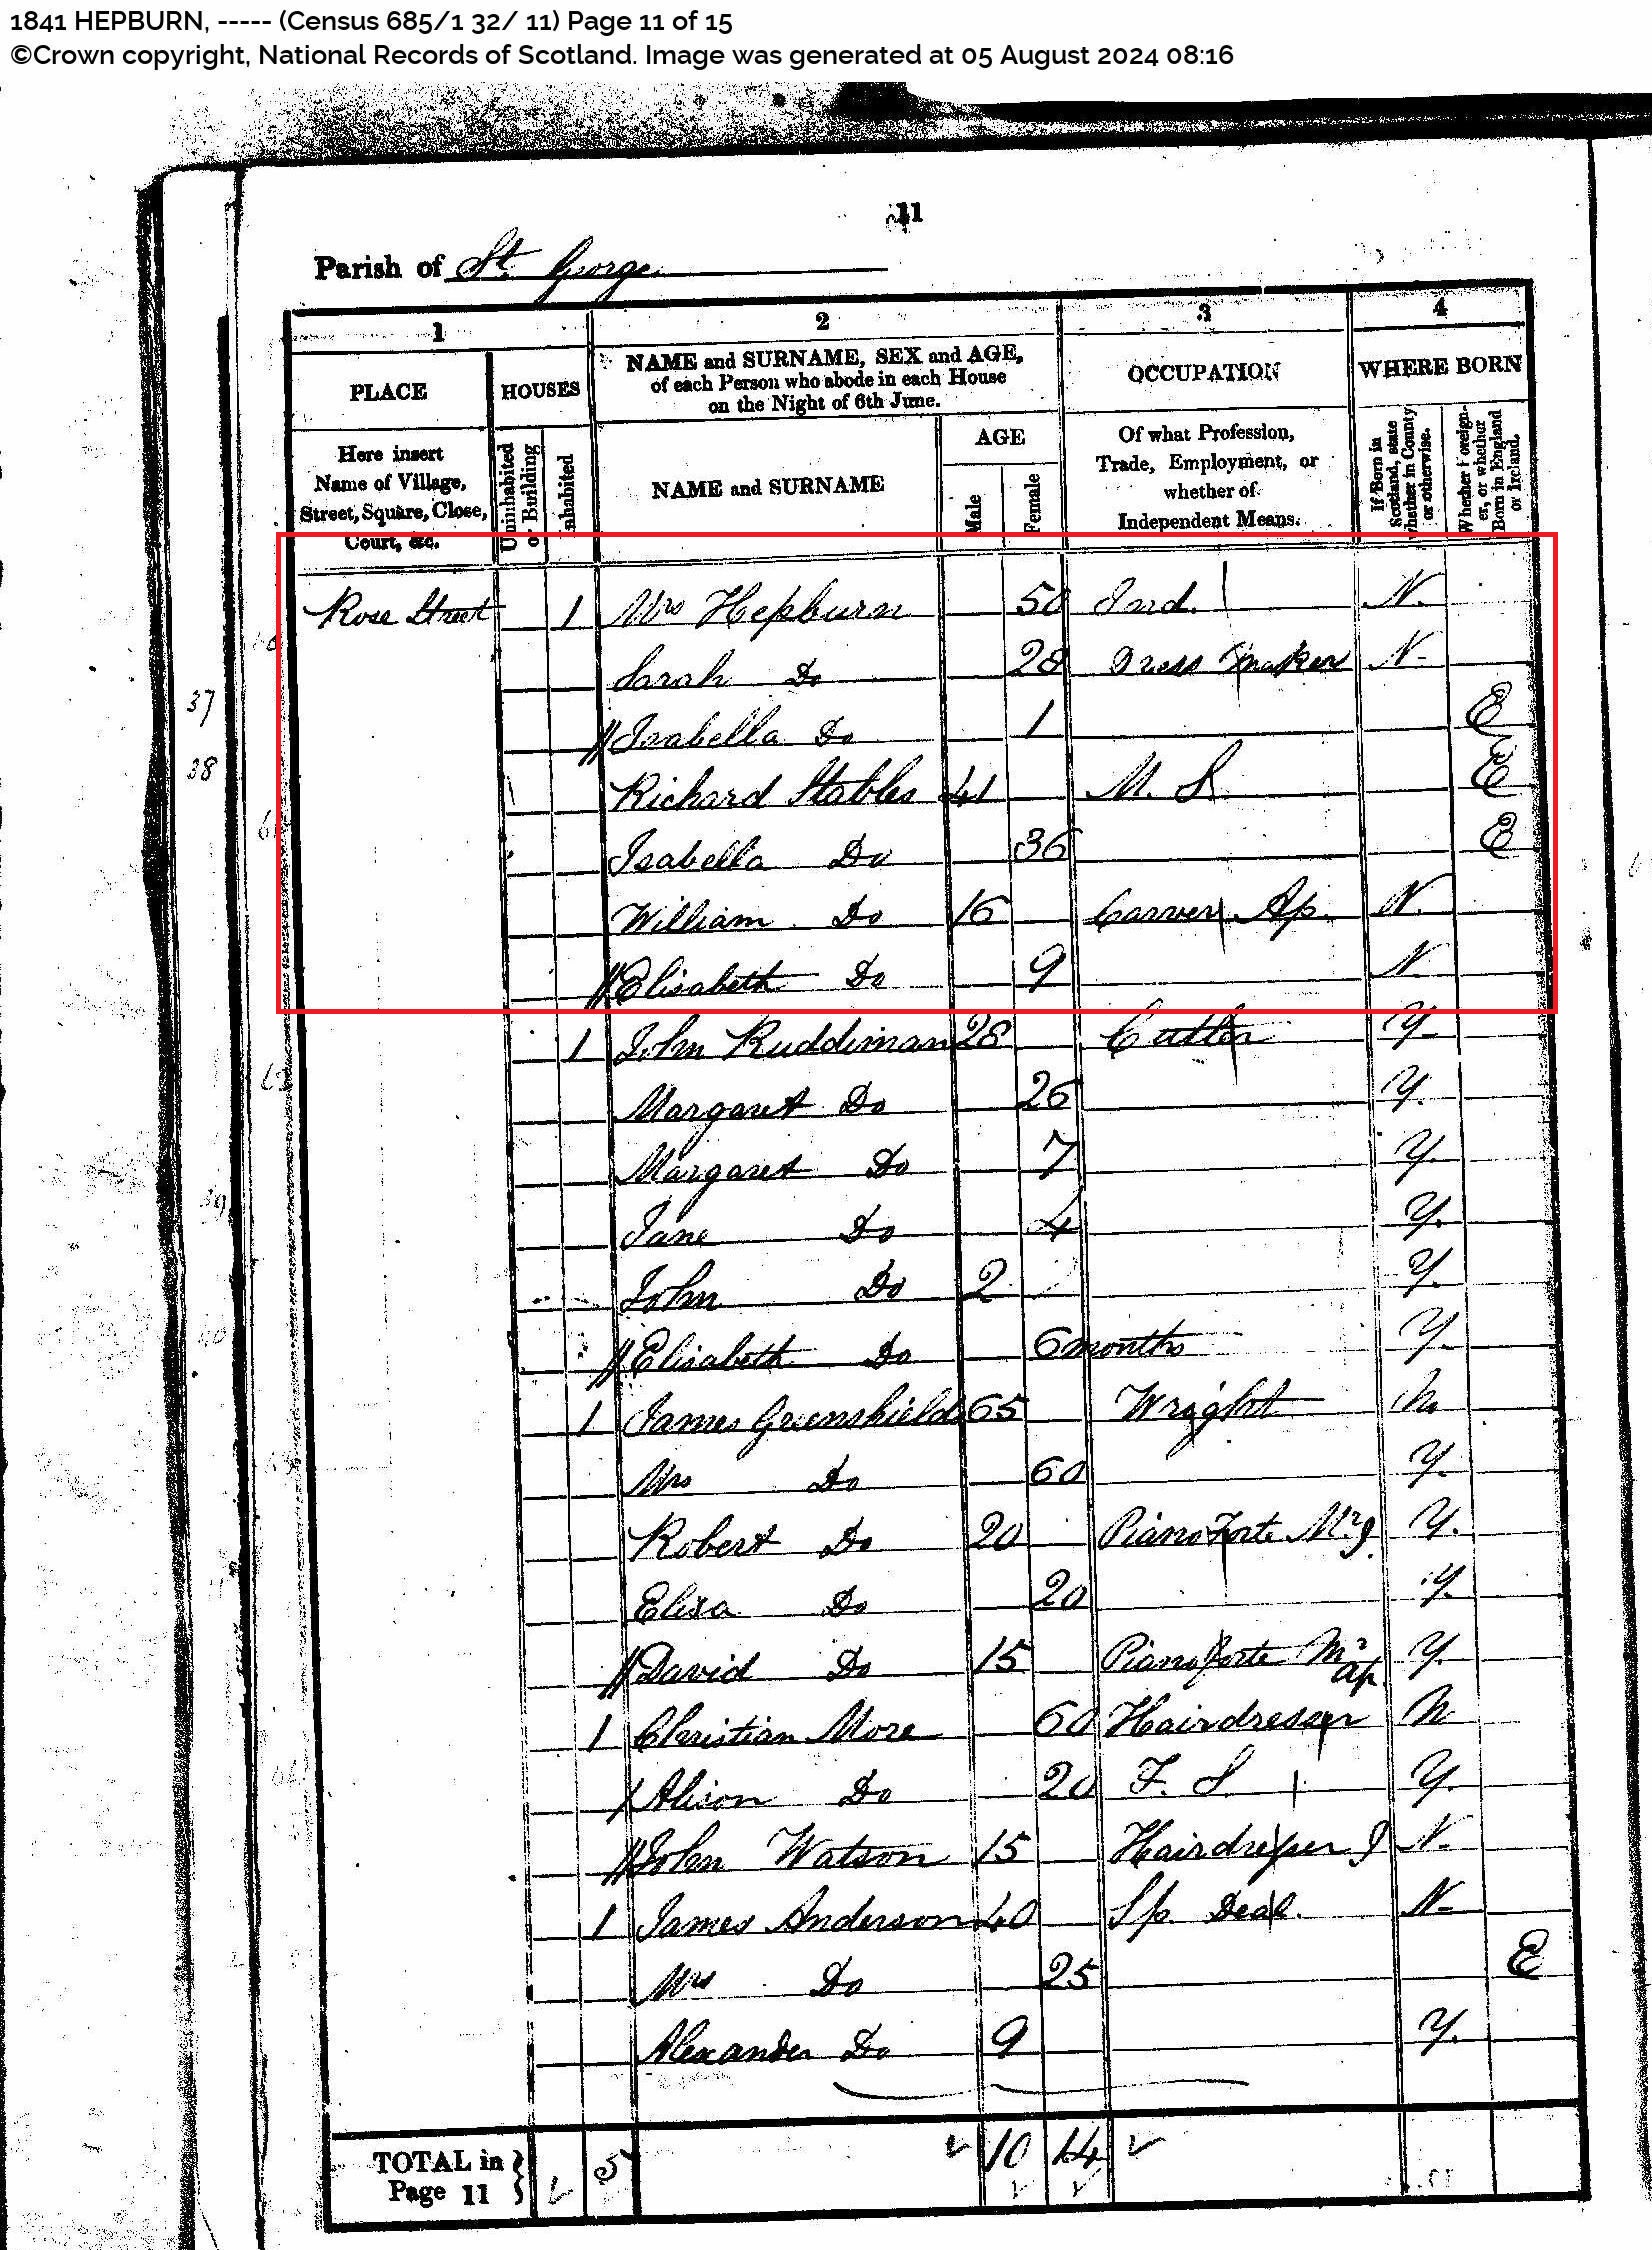 1841 HEPBURN, ----- (Census 685/1 32/ 11) Page 11 of 15
©Crown copyright, National Records of Scotland. Image was generated at 05 August 2024 08:16
11
Parish of St. George
1 2 3 4
PLACE HOUSES NAME and SURNAME, SEX and AGE, of each Person who abode in each House on the Night of 6th June. OCCUPATION WHERE BORN
Here insert Name of Village, Street, Square, Close, Court, &c. Uninhabited or Building Inhabited NAME and SURNAME AGE Male Female Of what Profession, Trade, Employment, or whether of Independent Means. If Born in Scotland, state whether in County or otherwise. Whether Foreigner, or whether Born in England or Ireland.
Rose Street 1 Mrs Hepburn 50 Ind. N.
Sarah Do 28 Dress Maker N.
37 Isabella Do 1 E
38 Richard Stables 41 M. S. E
Isabella Do 36 E
William Do 16 Carver Ap. N.
Elisabeth Do 9 N.
1 John Ruddiman 28 Cutler Y.
Margaret Do 26 Y.
Margaret Do 7 Y.
39 Jane Do 4 Y.
John Do 2 Y.
40 Elisabeth Do 6 months Y.
1 James Greenshield 65 Wright N
Mrs Do 60 Y.
Robert Do 20 Piano Forte Mr J. Y.
Elisa Do 20 Y.
David Do 15 Piano Forte Mr ap. Y.
1 Christian More 60 Hairdresser N
Alison Do 20 F. S. Y.
John Watson 15 Hairdresser J N.
1 James Anderson 40 Sp. Deal. N.
Mrs Do 25 E
Alexander Do 9 Y.
TOTAL in Page 11 5 10 14